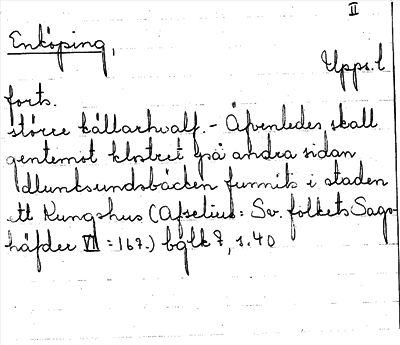 II
Enköping,
Upps. l.
forts.
större källarhvalf. - Äfvenledes skall
gentemot klostret på andra sidan
Munksundsbäcken funnits i staden
ett Kungshus (Afzelius: Sv. folkets Sago-
häfder VII: 167.) bglk 7, s. 40